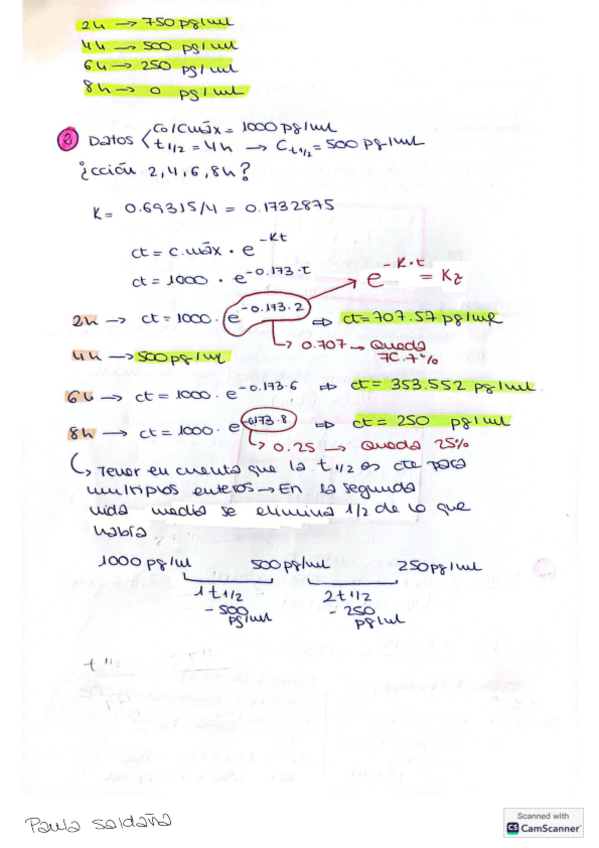 2h → 750 pg/ml
4h → 500 pg/ml
6h → 250 pg/ml
8h → 0 pg/ml
2 Datos Co/Cmáx = 1000 pg/ml
t 1/2 = 4h → Ct1/2 = 500 pg/ml
¿cción 2,4,6,8h?
K = 0.69315/4 = 0.1732875
ct = c.máx · e^-Kt
ct = 1000 · e^-0.173·t
e^-K·t = K2
2h → ct = 1000 · e^-0.173·2 ⇒ ct = 707.57 pg/ml
↳ 0.707 → Queda 70.7%
4h → 500 pg/ml
6h → ct = 1000 · e^-0.173·6 ⇒ ct = 353.552 pg/ml
8h → ct = 1000 · e^-0.173·8 ⇒ ct = 250 pg/ml
↳ 0.25 → Queda 25%
↳ Tener en cuenta que la t 1/2 es cte para
multiplos enteros → En la segunda
vida media se elimina 1/2 de lo que
había
1000 pg/ml 500 pg/ml 250 pg/ml
1 t 1/2 2 t 1/2
- 500 pg/ml - 250 pg/ml
t 1/2
Paula Saldaña
Scanned with
CS CamScanner